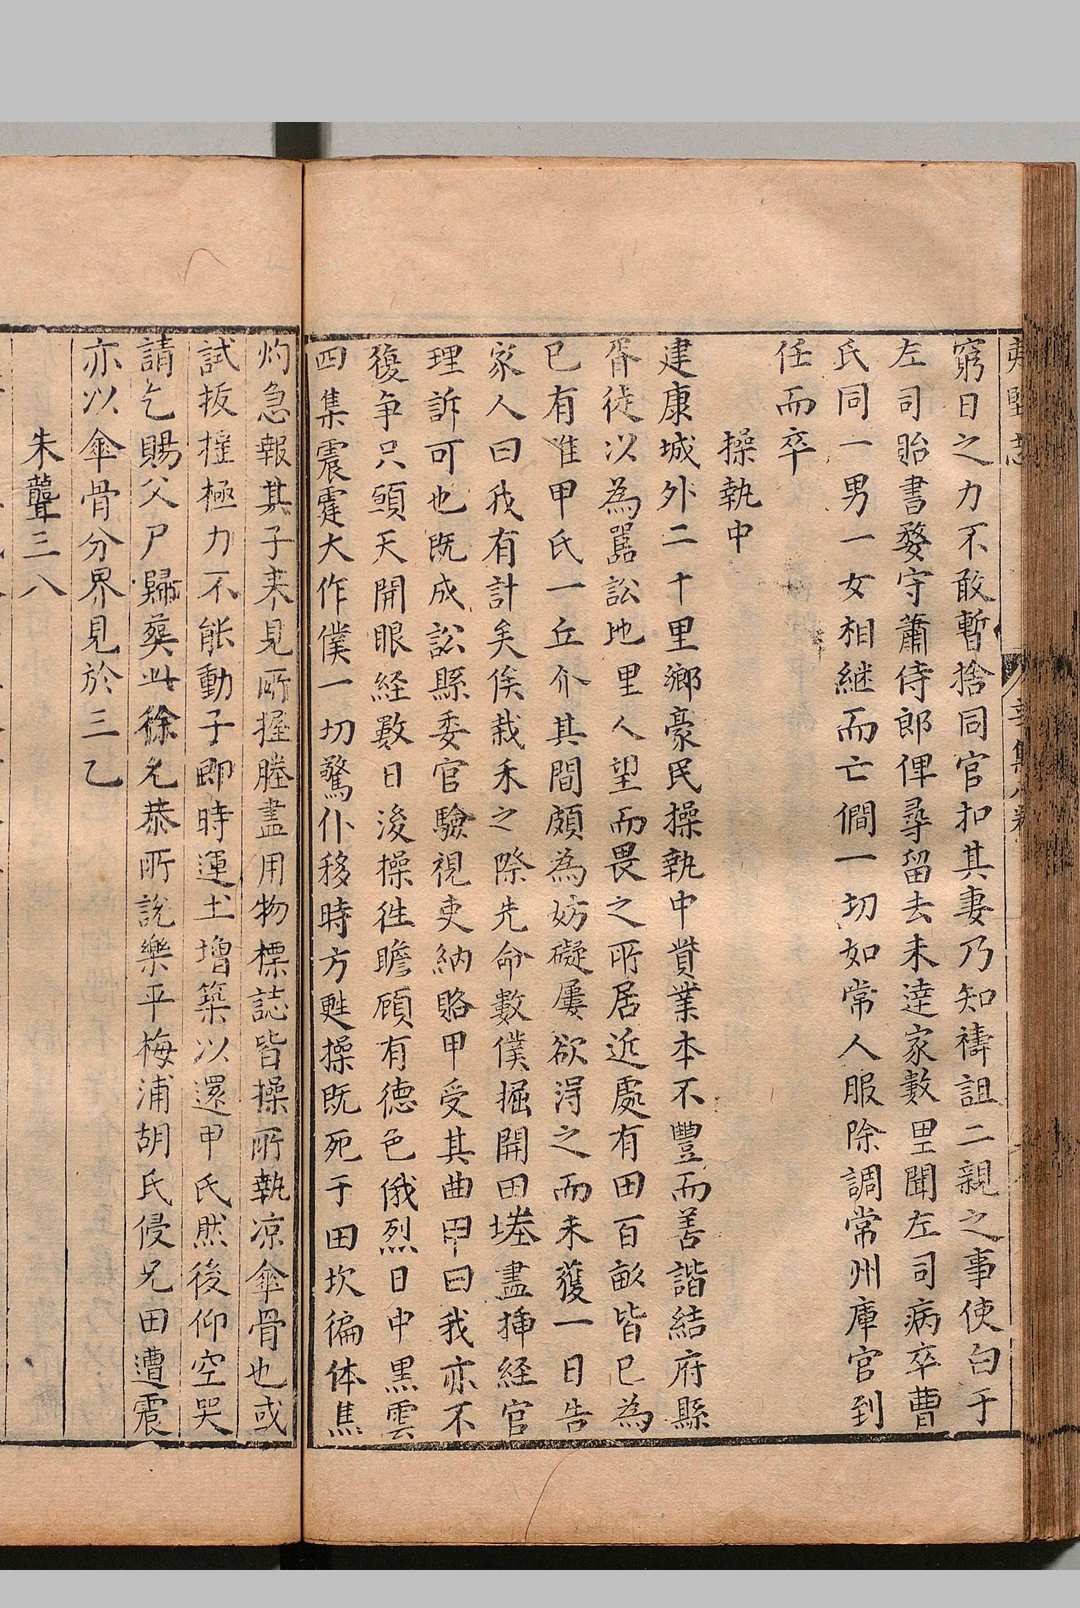 夷堅志
辛集
窮日之力不敢暫捨同官扣其妻乃知禱詛二親之事使白于
左司貽書婺守蕭侍郎俾尋留去未達家數里聞左司病卒曹
氏同一男一女相繼而亡僩一切如常人服除調常州庫官到
任而卒
操執中
建康城外二十里鄉豪民操執中貲業本不豐而善諧結府縣
胥徒以為嚚訟地里人望而畏之所居近處有田百畝皆已為
已有惟甲氏一丘介其間頗為妨礙屢欲淂之而未獲一日告
家人曰我有計矣俟栽禾之際先命數僕掘開田塍盡揷経官
理訴可也既成訟縣委官驗視吏納賂甲受其曲甲曰我亦不
復争只願天開眼経數日後操徃瞻顧有德色俄烈日中黒雲
四集震霆大作僕一切驚仆移時方甦操既死于田坎徧体焦
灼急報其子来見所握塍盡用物標誌皆操所執凉傘骨也或
試拔攉極力不能動子即時運土增築以還甲氏然後仰空哭
請乞賜父尸歸葬此徐允恭所說樂平梅浦胡氏侵兄田遭震
亦以傘骨分界見於三乙
朱聾三八